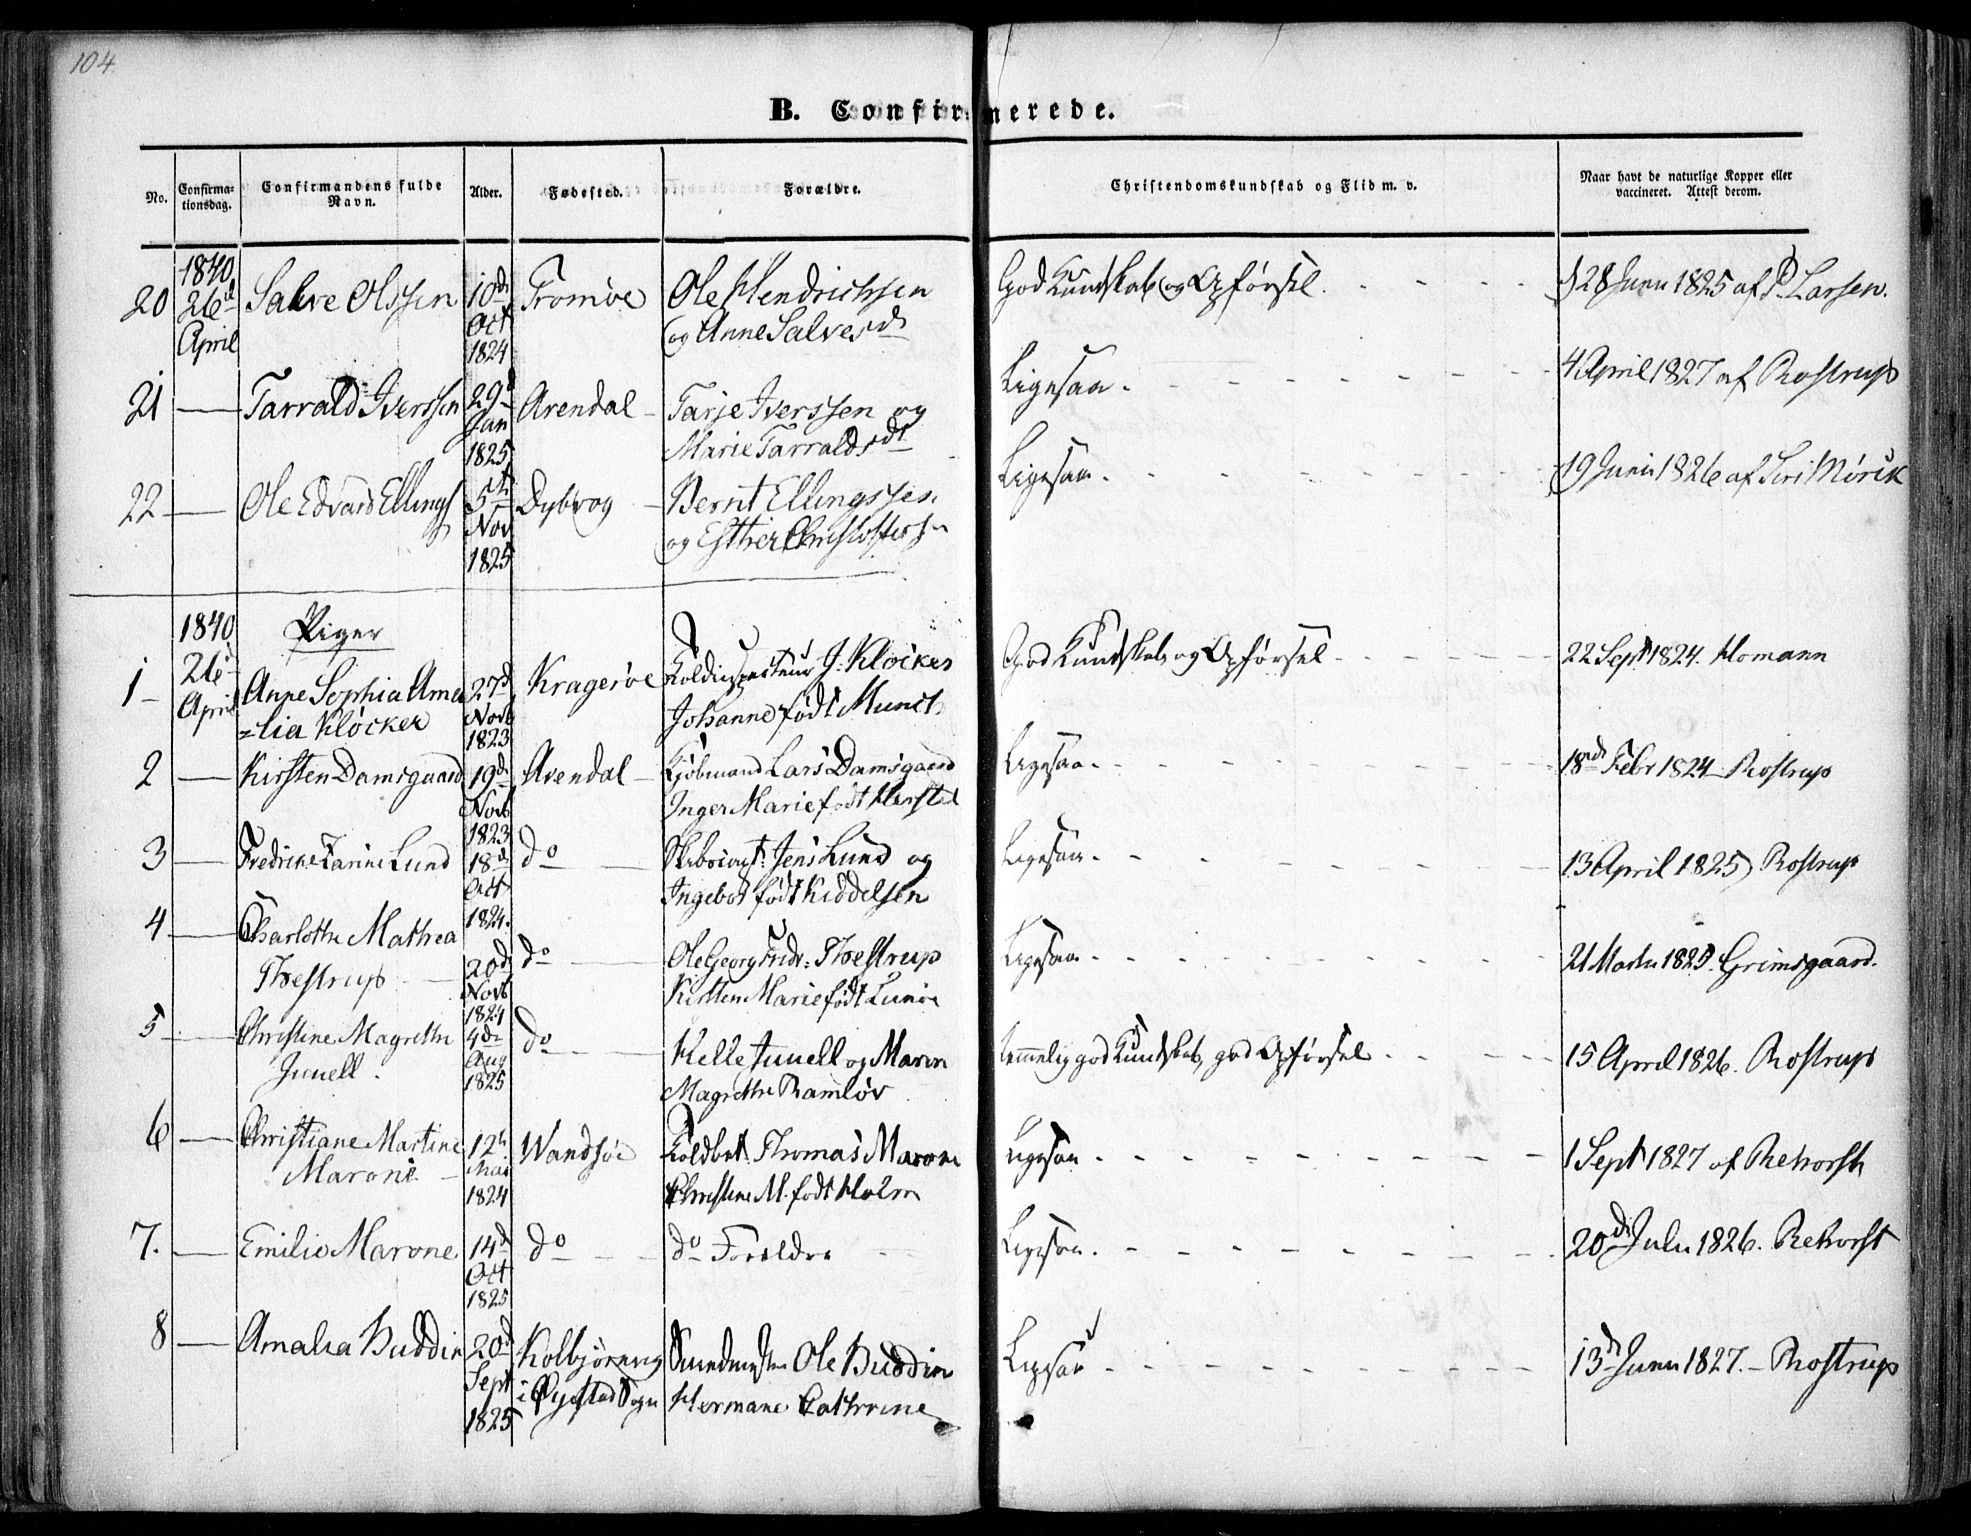 104
B. Confirmerede.
No.
Confirma-
tionsdag.
Confirmandens fulde
Navn.
Alder.
Fødested.
Forældre.
Christendomskundskab og Flid m. v.
Naar havt de naturlige Kopper eller
vaccineret. Attest derom.
1840
20 26d April Salve Olssen 10d Oct 1824 Tromøe Ole Hendrichsen
og Anne Salvesd
God Kundskab og Opførsel. 28 Juni 1825 af P. Larsen.
21 Tarrald Iverssen 29d Jan 1825 Arendal Tarje Iverssen og
Marie Tarraldsdt
Ligesaa. 4 April 1827 af Rostrup
22 Ole Edvard Ellings 5t Nov 1825 Dybvog Bernt Ellingssen
og Esther
Ligesaa. 19 Juni 1826 af Mörck
1840 Piger
1 26d April Anne Sophia Ame
=lia Klöcker 27d Novb 1823 Kragerøe Toldinspecteur J. Klöcker
Johanne født Munch
God Kundskab og Opførsel 22 Sept 1824. Homann
2 Kirsten Damsgaard 19d Novb 1823 Arendal Kjöbmand Lars Damsgaard
Inger Marie født
Ligesaa. 18d Febr 1824 Rostrup
3 Fredrikke Karine Lund 18d Oct 1824. do Jens Lund og
Ingebor født Kiddelsen
Ligesaa. 13 April 1825 Rostrup
4 Charlotte Mathea
Thestrup 20d Novb 1824 do Ole Georg Fridr: Thestrup
Kirsten Marie født
Ligesaa 1825. Grimsgaard.
5 Christine Magrethe
Junell. 4de Aug 1825 do Kelle Junell og Maren
Magrethe Ramløv
temmelig god Kundskab, god Opførsel 15 April 1826. Rostrup
6 Christiane Martine
Marone. 12 Mai 1824 Toldbet. Thomas Marone
Christine M. født Holm
Ligesaa 1 Sept 1827 af Rehorst
7. Emilie Marone 14d Oct 1825 do do Forældre
Ligesaa. 20d Juli 1826. Rehorst
8 Amalia Buddin 20d Sept 1825 Kolbjørnvig
i Øyestad Sogn Smedmester Ole Buddin
Hermane Cathrine
Ligesaa 13d Juni 1827. Rostrup